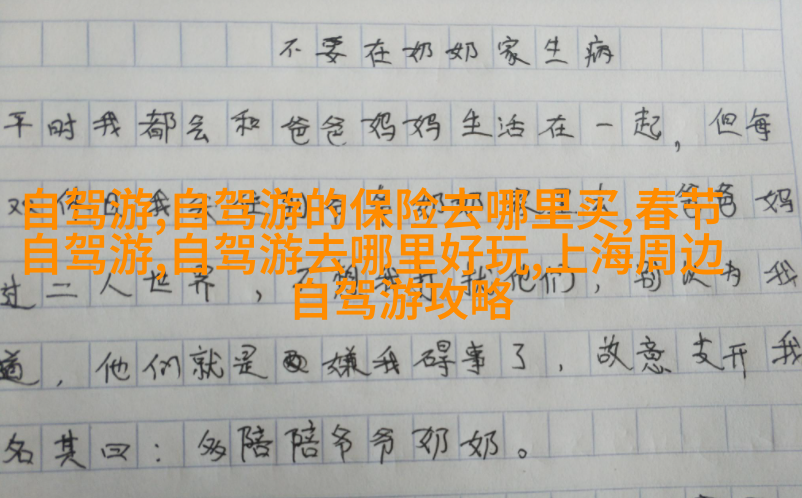 不要在奶奶家生病
平时我都会和爸爸妈妈生活在一起，但每
爸妈
自驾游,自驾游的保险去哪里买,春节
自驾游,自驾游去哪里好玩,上海周边
自驾游攻略
过二人世界，他们，每次有我
道，他们就是嫌我碍事了，故意支开我
名其曰：多陪陪爷爷奶奶。